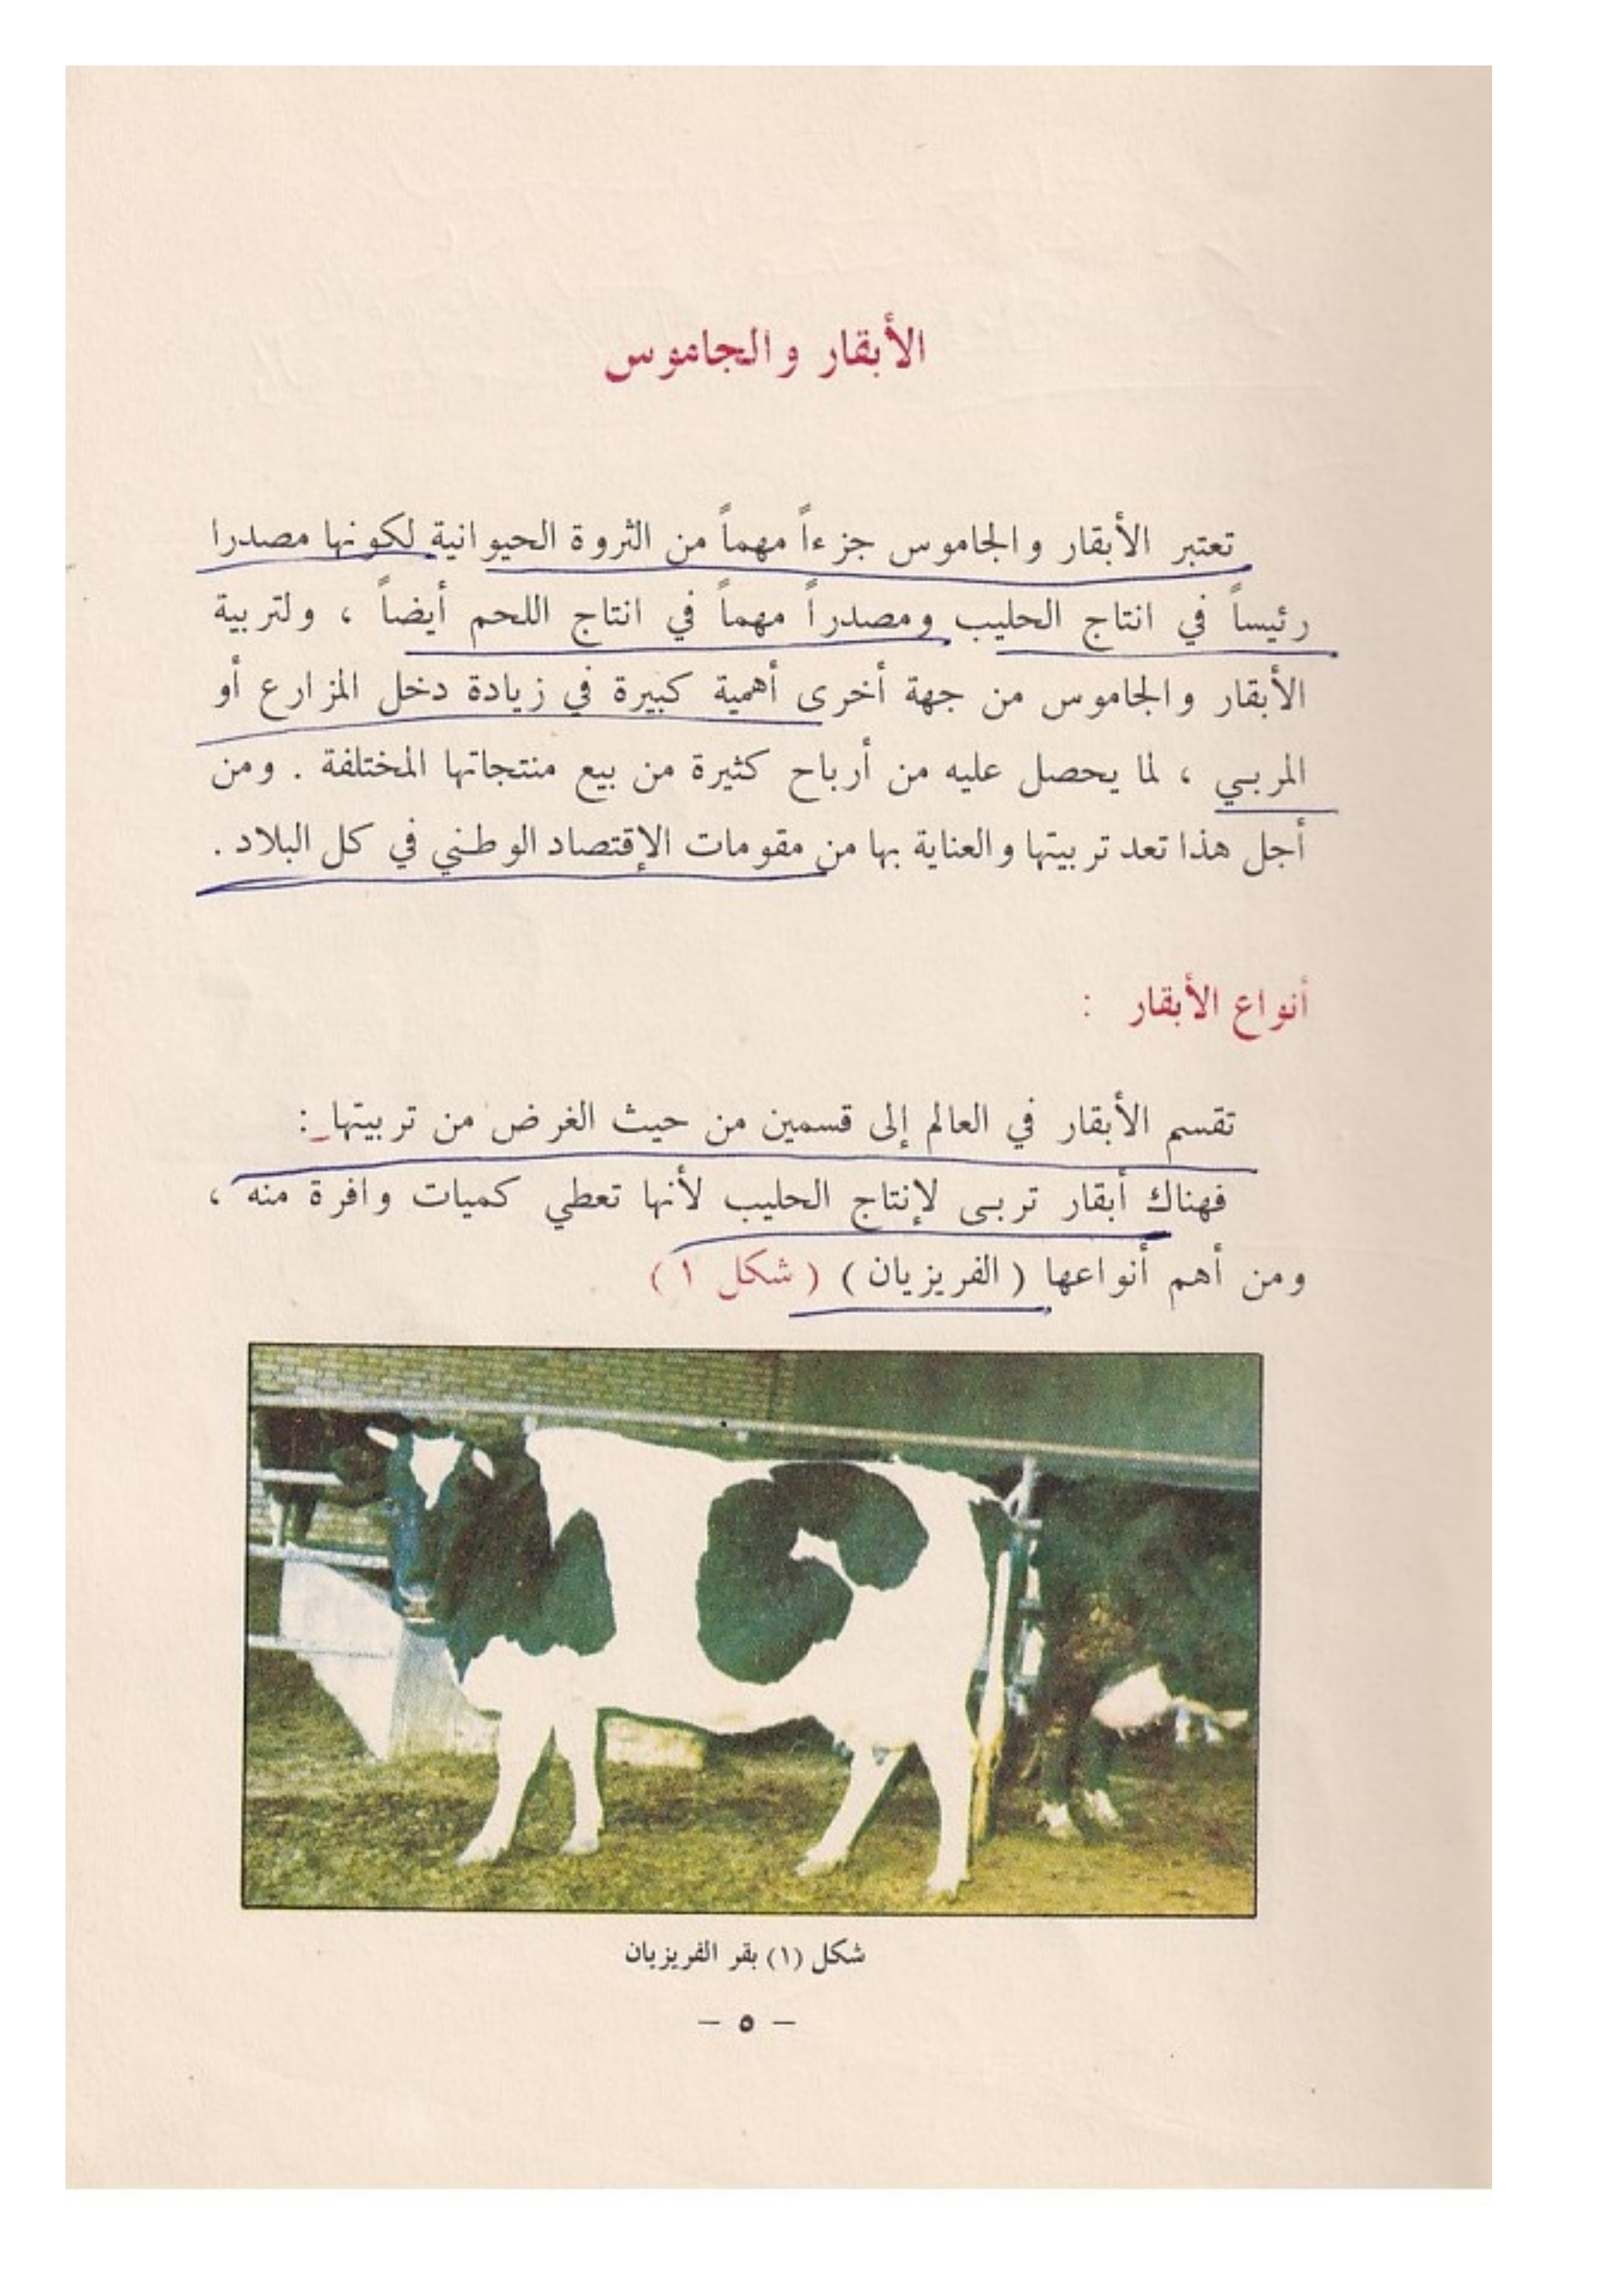 الأبقار والجاموس
تعتبر الأبقار والجاموس جزءاً مهماً من الثروة الحيوانية لكونها مصدرا
رئيساً في انتاج الحليب ومصدراً مهماً في انتاج اللحم أيضاً ، ولتربية
الأبقار والجاموس من جهة أخرى أهمية كبيرة في زيادة دخل المزارع أو
المربي ، لما يحصل عليه من أرباح كثيرة من بيع منتجاتها المختلفة . ومن
أجل هذا تعد تربيتها والعناية بها من مقومات الإقتصاد الوطني في كل البلاد .
أنواع الأبقار :
تقسم الأبقار في العالم إلى قسمين من حيث الغرض من تربيتها :
فهناك أبقار تربى لإنتاج الحليب لأنها تعطي كميات وافرة منه ،
ومن أهم أنواعها ( الفريزيان ) ( شكل ١ )
شكل (١) بقر الفريزيان
– ٥ –